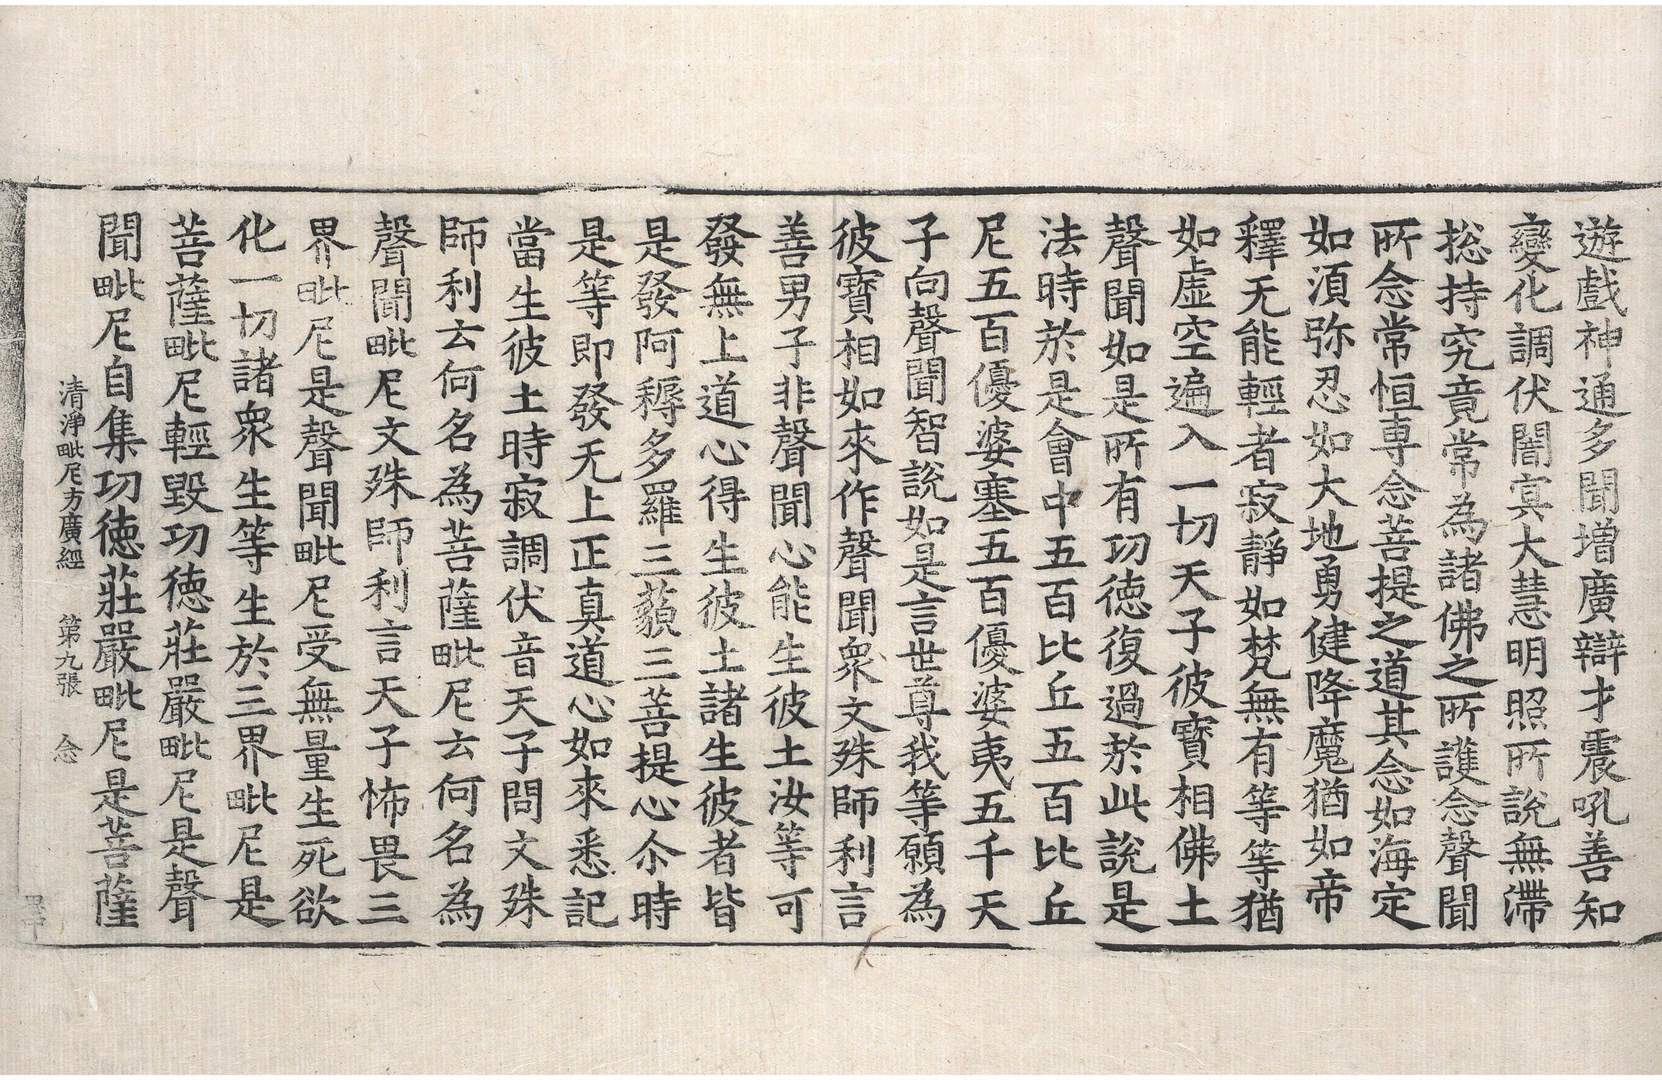 遊戲神通多聞增廣辯才震吼善知
變化調伏闇㝠大慧明照所說無滯
捴持究竟常為諸佛之所護念聲聞
所念常恒専念菩提之道其念如海定
如湏弥忍如大地勇健降魔猶如帝
釋无能輕者寂靜如梵無有等等猶
如虛空遍入一切天子彼寶相佛土
聲聞如是所有功徳復過於此說是
法時於是會中五百比丘五百比丘
尼五百優婆塞五百優婆夷五千天
子向聲聞智說如是言世尊我等願為
彼寶相如來作聲聞衆文殊師利言
善男子非聲聞心能生彼土汝等可
發無上道心得生彼土諸生彼者皆
是發阿耨多羅三藐三菩提心尒時
是等即發无上正真道心如來悉記
當生彼土時寂調伏音天子問文殊
師利云何名為菩薩毗尼云何名為
聲聞毗尼文殊師利言天子怖畏三
界毗尼是聲聞毗尼受無量生死欲
化一切諸衆生等生於三界毗尼是
菩薩毗尼輕毀功徳莊嚴毗尼是聲
聞毗尼自集功徳莊嚴毗尼是菩薩
清淨毗尼方廣經 第九張 念